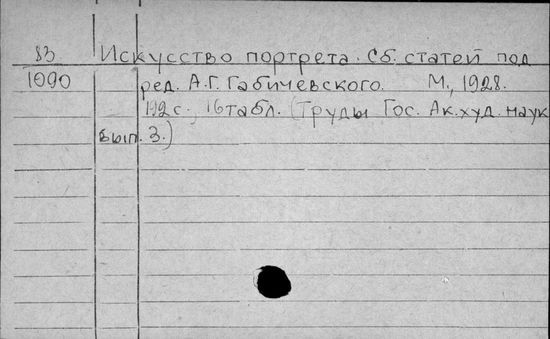 83 Искусство портрета. Сб. статей под
1090 ред. А.Г. Габичевского. М., 1928.
192 с., 16 табл. (Труды Гос. Ак. худ. наук
вып. 3.)